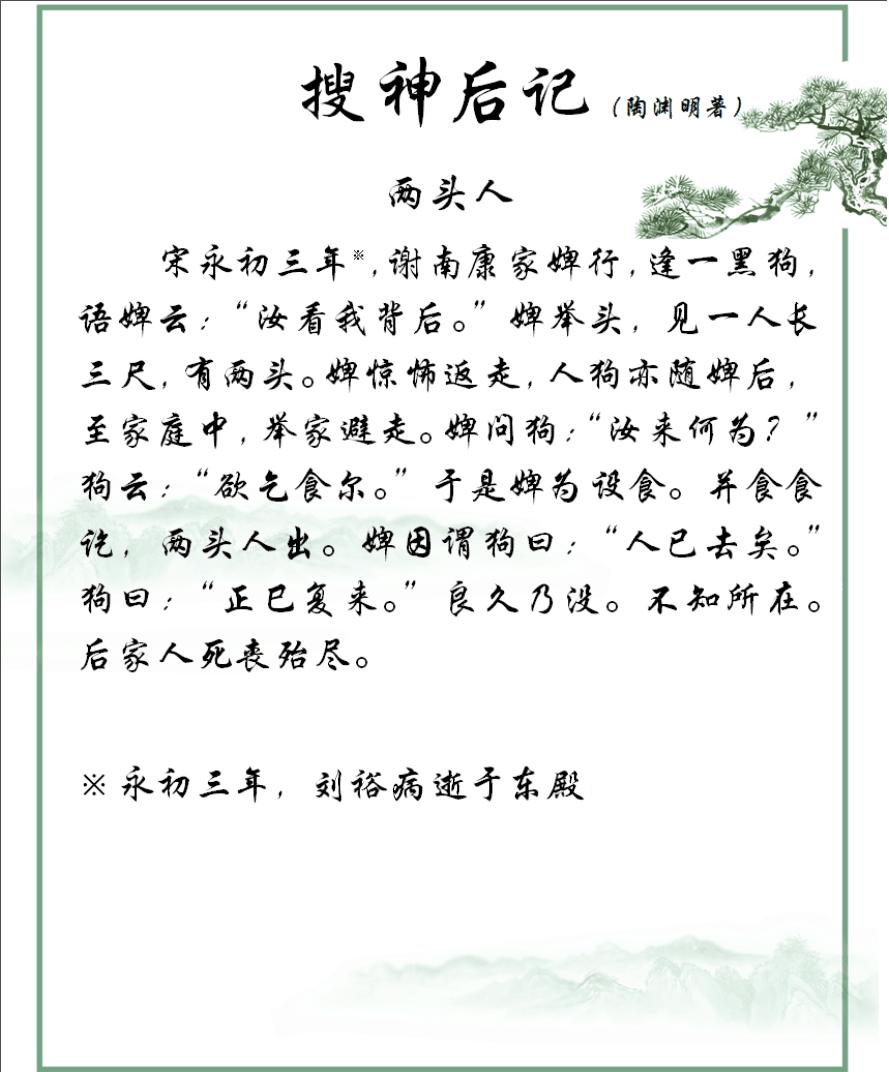 搜神后记（陶渊明著）
两头人
宋永初三年※，谢南康家婢行，逢一黑狗，
语婢云：“汝看我背后。”婢举头，见一人长
三尺，有两头。婢惊怖返走，人狗亦随婢后，
至家庭中，举家避走。婢问狗：“汝来何为？”
狗云：“欲乞食尔。”于是婢为设食。并食食
讫，两头人出。婢因谓狗曰：“人已去矣。”
狗曰：“正巳复来。”良久乃没。不知所在。
后家人死丧殆尽。
※永初三年，刘裕病逝于东殿